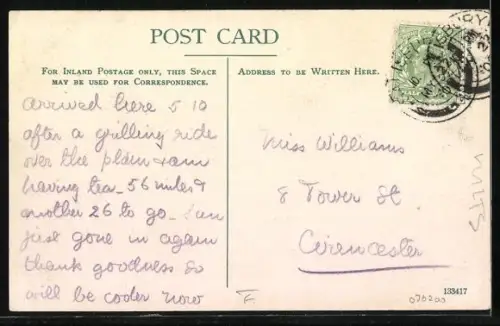 POST CARD
FOR INLAND POSTAGE ONLY, THIS SPACE
MAY BE USED FOR CORRESPONDENCE.
ADDRESS TO BE WRITTEN HERE.
arrived here 5 10
after a grilling ride
over the plain & am
having tea – 56 miles &
another 26 to go – Sun
just gone in again
thank goodness so
will be cooler now
Miss Williams
8 Tower St.
Cirencester
WILTS
F
133417